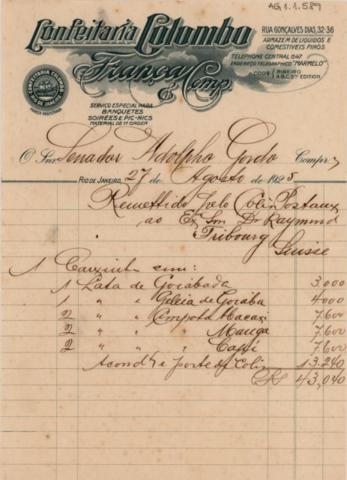 AG.1.1.589
Confeitaria Columbo
RUA GONÇALVES DIAS, 32-36
ARMAZEM DE LIQUIDOS E
COMESTIVEIS FINOS
TELEPHONE CENTRAL
ENDEREÇO TELEGRAPHICO "MARMELO"
CODS RIBEIRO
A.B.C. 5ª EDITION
França & Comp.
SERVIÇO ESPECIAL PARA
BANQUETES
SOIRÉES E PIC-NICS
MATERIAL DE 1ª ORDEM
O Snr. Senador Adolpho Gordo Compr.
RIO DE JANEIRO, 27 de Agosto de 192
Remettido pelo Colis Postaux
ao Ex Snr Dr Raymond
Fribourg
Suisse
1 Caixinha com:
1 Lata de Goiabada 3.000
1 " " Geleia de Goiaba 4000
2 " " Compota 7.600
2 " " " Manga 7.600
2 " " " Cajú 7.600
e porte do Colis 13.240
43,040